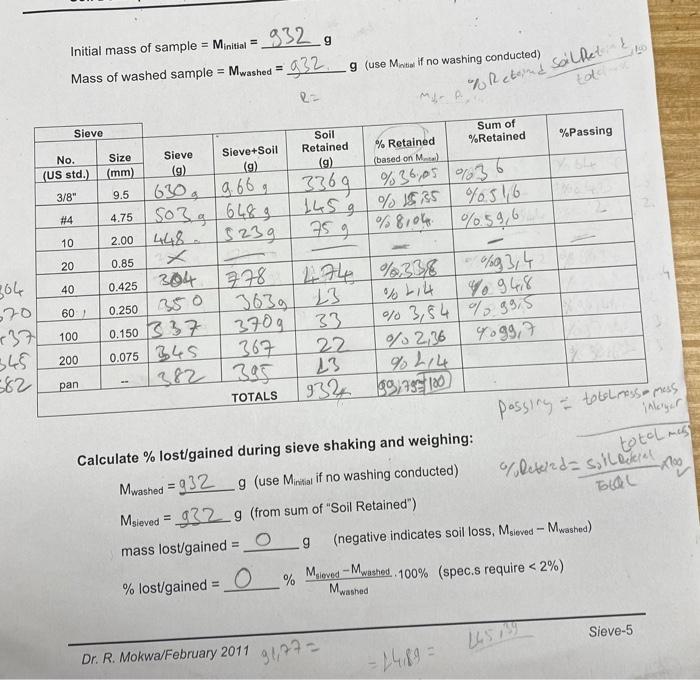 Initial mass of sample = Minitial = 932 g
Mass of washed sample = Mwashed = 932 g (use Minitial if no washing conducted)
R=
% Retained Soil Retained 100
total
Sieve
No. (US std.) Size (mm) Sieve (g) Sieve+Soil (g) Soil Retained (g) % Retained (based on Minitial) Sum of %Retained %Passing
3/8" 9.5 630 g 966 g 336 g %36,05 %36
#4 4.75 503 g 648 g 145 g % 15,55 %51,6
10 2.00 448 523 g 75 g %8,04 %59,6
20 0.85 x — — — —
40 0.425 304 778 474 %3,38 %93,4
60 0.250 350 363 g 13 %1,4 %94,8
100 0.150 337 370 g 33 %3,54 %99,5
200 0.075 345 367 22 %2,36 %99,7
pan -- 382 395 13 %1,4
TOTALS 932 99,79≅100
304
370
337
345
382
passing = total mass - mass in larger
total mass
Calculate % lost/gained during sieve shaking and weighing:
%Retained = Soil Retained x100
Total
Mwashed = 932 g (use Minitial if no washing conducted)
Msieved = 932 g (from sum of "Soil Retained")
mass lost/gained = 0 g (negative indicates soil loss, Msieved – Mwashed)
% lost/gained = 0 % Msieved – Mwashed .100% (spec.s require < 2%)
Mwashed
Dr. R. Mokwa/February 2011 91,77 =
= 14,89 =
Sieve-5